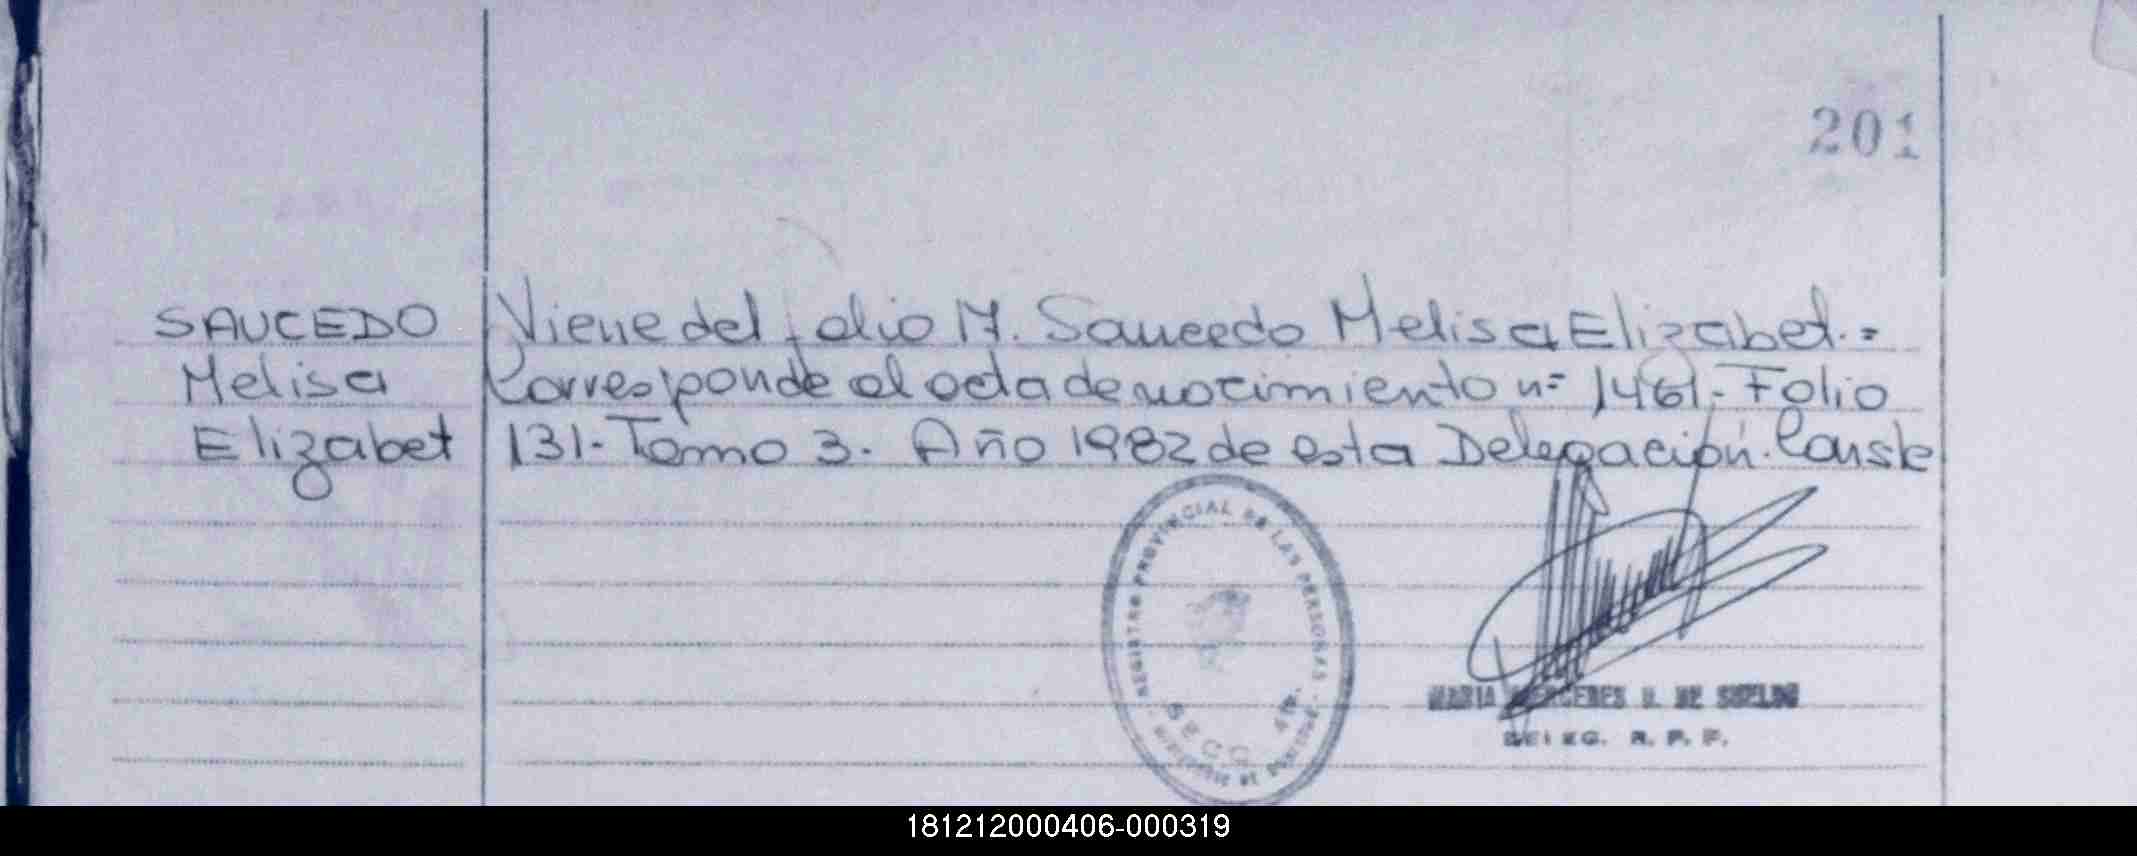 201
SAUCEDO Viene del folio 17. Saucedo Melisa Elizabet.=
Melisa Corresponde al acta de nacimiento nº 1461.- Folio
Elizabet 131- Tomo 3. Año 1982 de esta Delegación. Conste
REGISTRO PROVINCIAL DE LAS PERSONAS
SECC. 4ta.
MARIA MERCEDES U. DE SUELDO
DELEG. R. P. P.
181212000406-000319